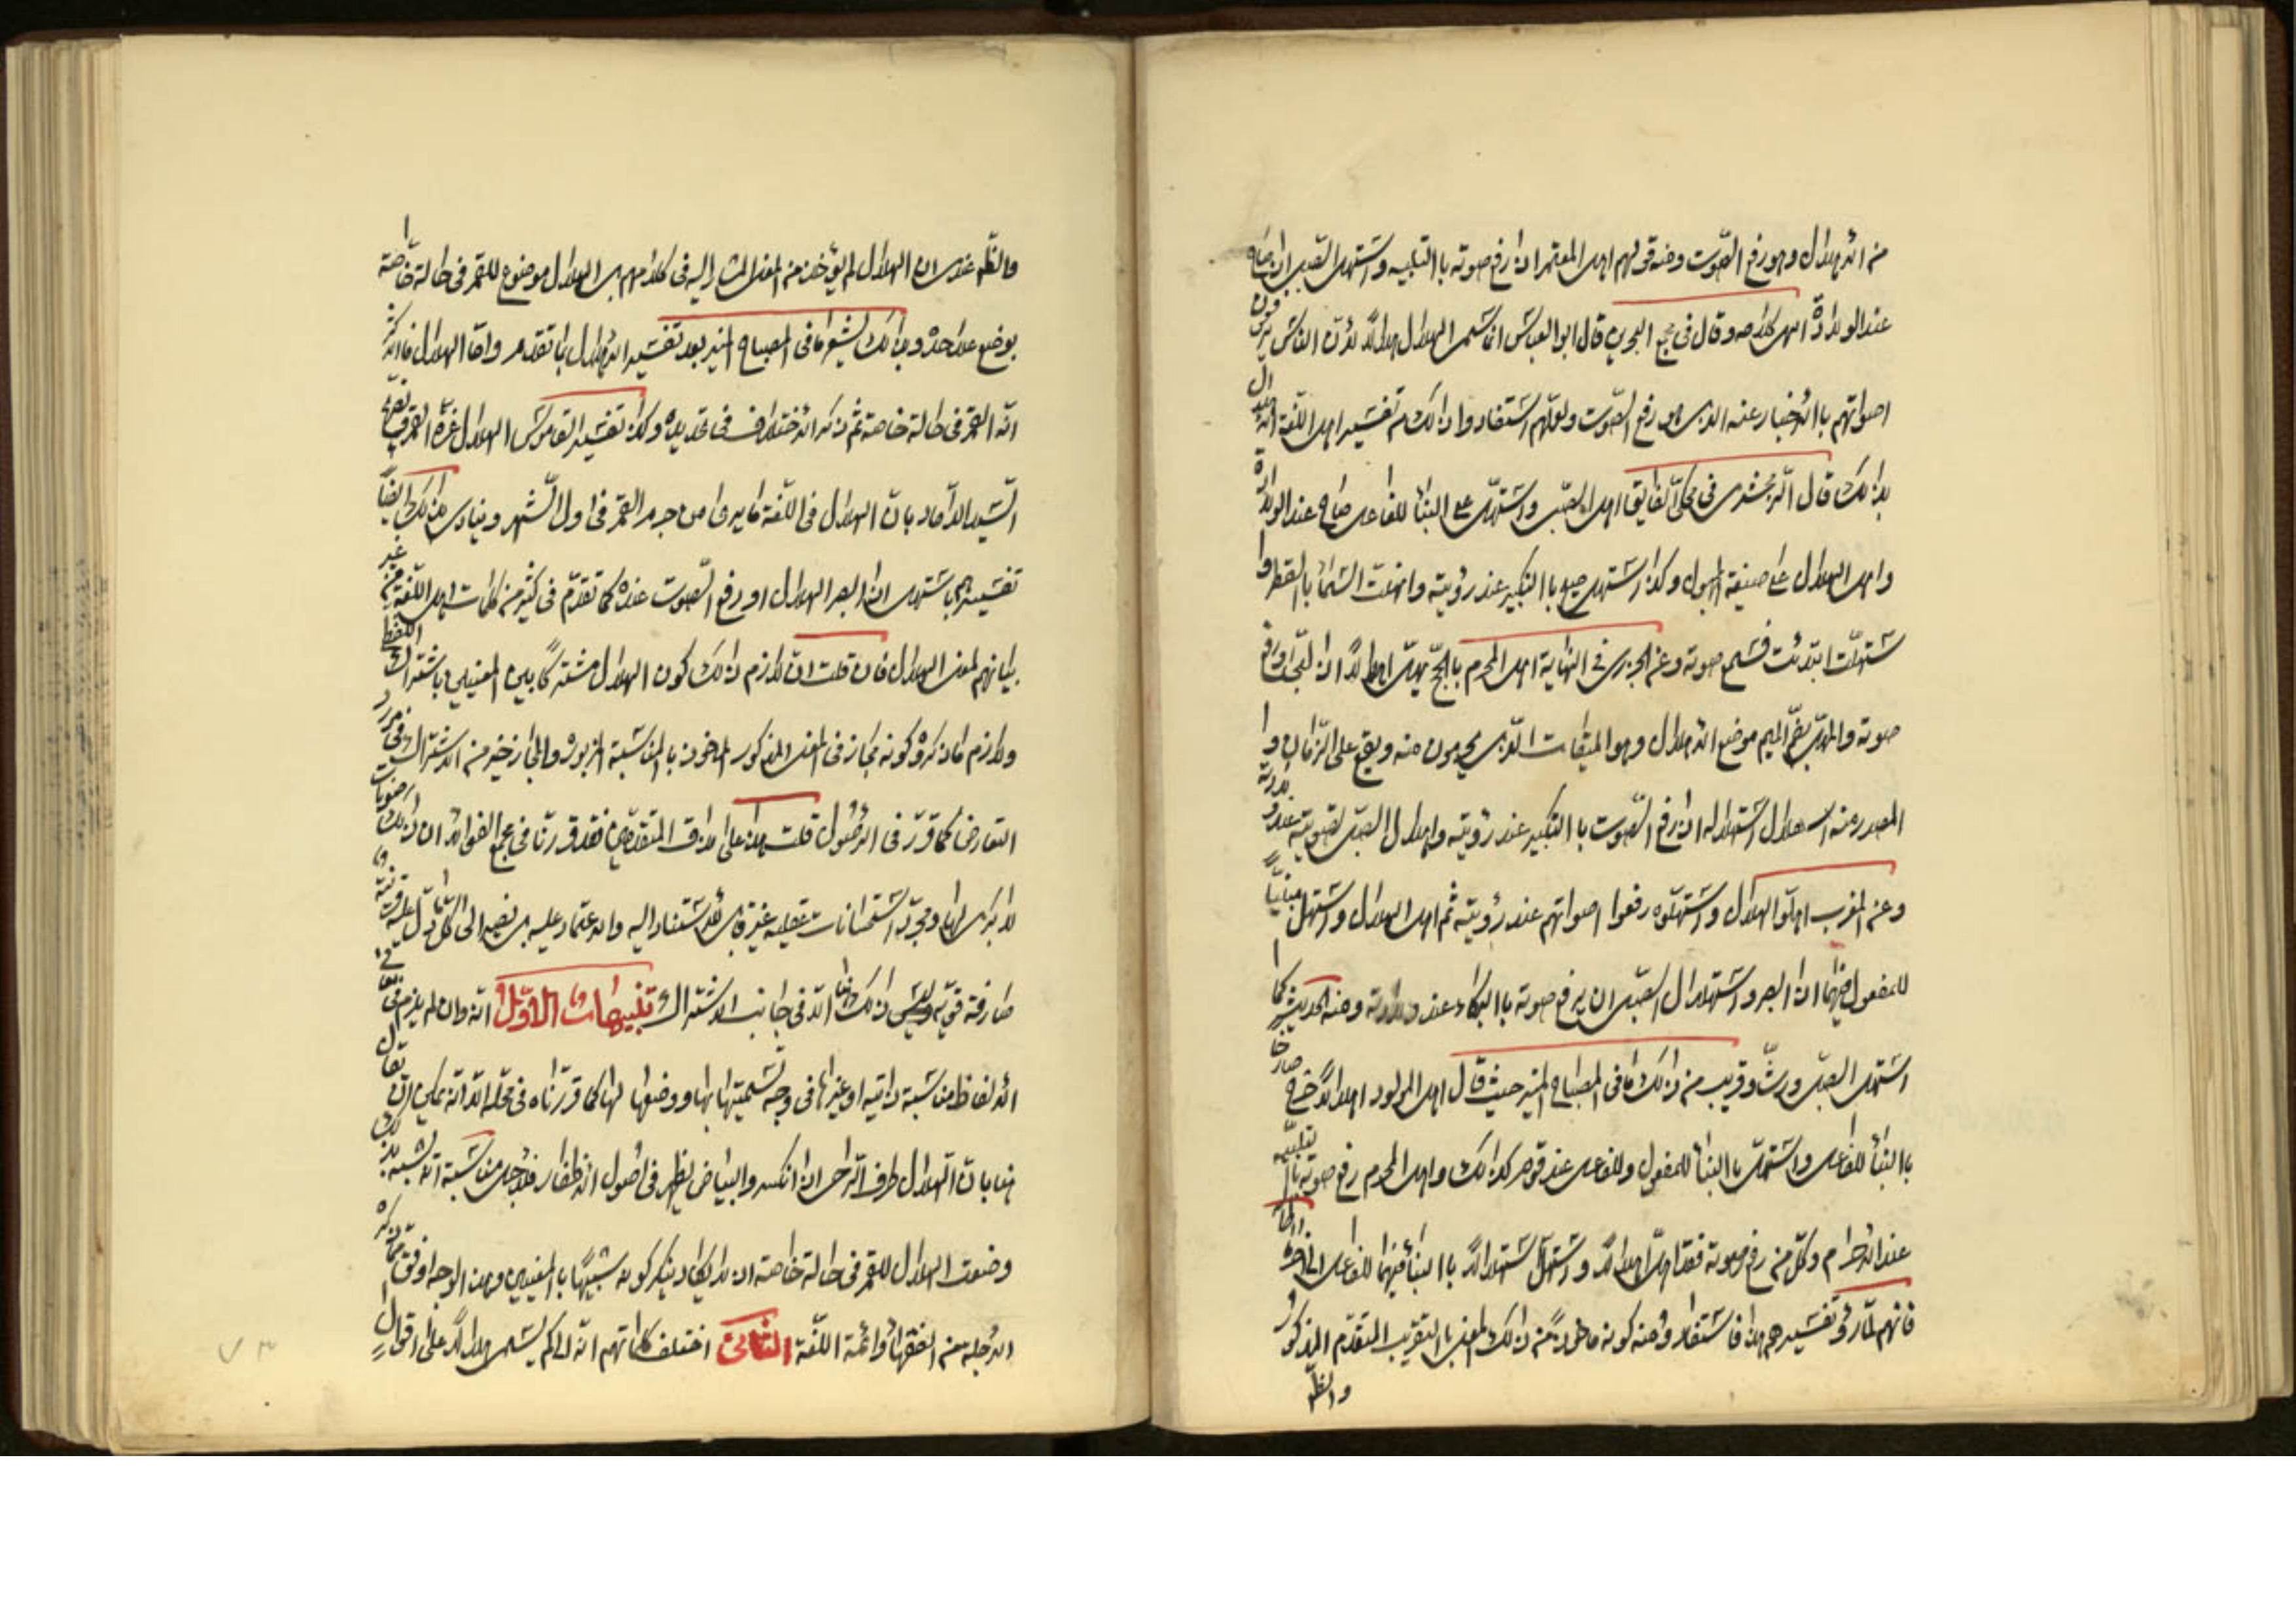 من الاهلال وهو رفع الصوت ومنه قولهم اهل المعتمر اذا رفع صوته بالتلبية واستهل الصبي اذا صاح
عند الولادة انتهى كلامه وقال في مجمع البحرين قال ابو العباس انما سمي الهلال هلالا لان الناس يرفعون
اصواتهم بالاخبار عنه الذي هو رفع الصوت ولعلهم استفادوا ذلك من تفسير اهل اللغة الاهلال
بذلك قال الزمخشري في محكي الفايق اهل الصبي واستهل على البناء للفاعل صاح عند الولادة
واهل الهلال على صيغة المجهول وكذا استهل صيح بالتكبير عند رؤيته وانهلت السماء بالقطر وا
ستهلت ابتدئت فسمع صوته وعن الجزري في النهاية اهل المحرم بالحج يهل اهلالا اذا لبى ورفع
صوته والمهل بضم الميم موضع الاهلال وهو الميقات الذي يحرمون منه ويقع على الزمان وا
لمصدر ومنه اهلال الهلال واستهلاله اذا رفع الصوت بالتكبير عند رؤيته واهلال الصبي تصويته عند ولادته
وعن المغرب اهلوا الهلال واستهلوه رفعوا اصواتهم عند رؤيته ثم اهل الهلال واستهل مبنيا
للمفعول فيهما اذا ابصر واستهلال الصبي ان يرفع صوته بالبكاء عند ولادته ومنه الحديث اذا
استهل الصبي ورث وقريب من ذلك ما في المصباح المنير حيث قال اهل المولود اهلالا خرج صارخا
بالبناء للفاعل واستهل بالبناء للمفعول وللفاعل عند قوم كذلك واهل المحرم رفع صوته بالتلبية
عند الاحرام وكل من رفع صوته فقد اهل اهلالا واستهل استهلالا بالبناء فيهما للفاعل الى اخره
فانهم لما رأوا تفسيرهم هذا فاستفادوا منه كونه ماخوذا من ذلك المعنى بالتقريب المتقدم المذكور
والظ
والظ عندي ان الهلال لم يؤخذ من المعنى المشار اليه في كلامهم بل الهلال موضوع للقمر في حالة خاصة
بوضع علاحدة وبذلك يشعر ما في المصباح المنير بعد تفسير الاهلال بما تقدم واما الهلال فالاكثر
انه القمر في حالة خاصة ثم ذكر الاختلاف في تحديده وكذا تفسير القاموس الهلال غرة القمر
السيد الداماد بان الهلال في اللغة ما يرى من جرم القمر في اول الشهر وينادي بذلك ايضا
تفسيرهم استهل اذا ابصر الهلال او رفع الصوت عنده كما تقدم في كثير من كلمات اهل اللغة من غير
بيانهم لمعنى الهلال فان قلت ان لازم ذلك كون الهلال مشتركا بين المعنيين باشتراك اللفظي
ولازم ما ذكروه كونه مجازا في المعنى المذكور الماخوذ بالمناسبة المزبورة والمجاز خير من الاشتراك في مورد
التعارض كما قرر في الاصول قلت هذا على مذاق المتقدمين فقد قررنا في مجمع الفوائد ان ذلك
لا مدرك لها ومجرد استحسانات عقلية غير قابل للاستناد اليه والاعتماد عليه بل نصير الى الكل بدلالة قرينة
صارفة قوية وليس ذلك ايضا الا في جانب الاشتراك تنبيهات الاول انه وان لم يلزم في
الالفاظ مناسبة ذاتية او غيرها في وجه تسميتها بها ووضعها لها كما قررناه في محله الا انه يمكن ان يقال
هنا بان الهلال طرف الرحى اذا انكسر والبياض يظهر في اصول الاظفار فلاجل مناسبة التشبيه بذلك
وضعت الهلال للقمر في حالة خاصة اذ لا يكاد ينكر كونه شبيها بالمعنيين وهذا الوجه اوفق مما ذكره
الاجلة من الفقهاء وائمة اللغة الثاني اختلف كلماتهم انه الى كم يسمى هلالا على اقوال